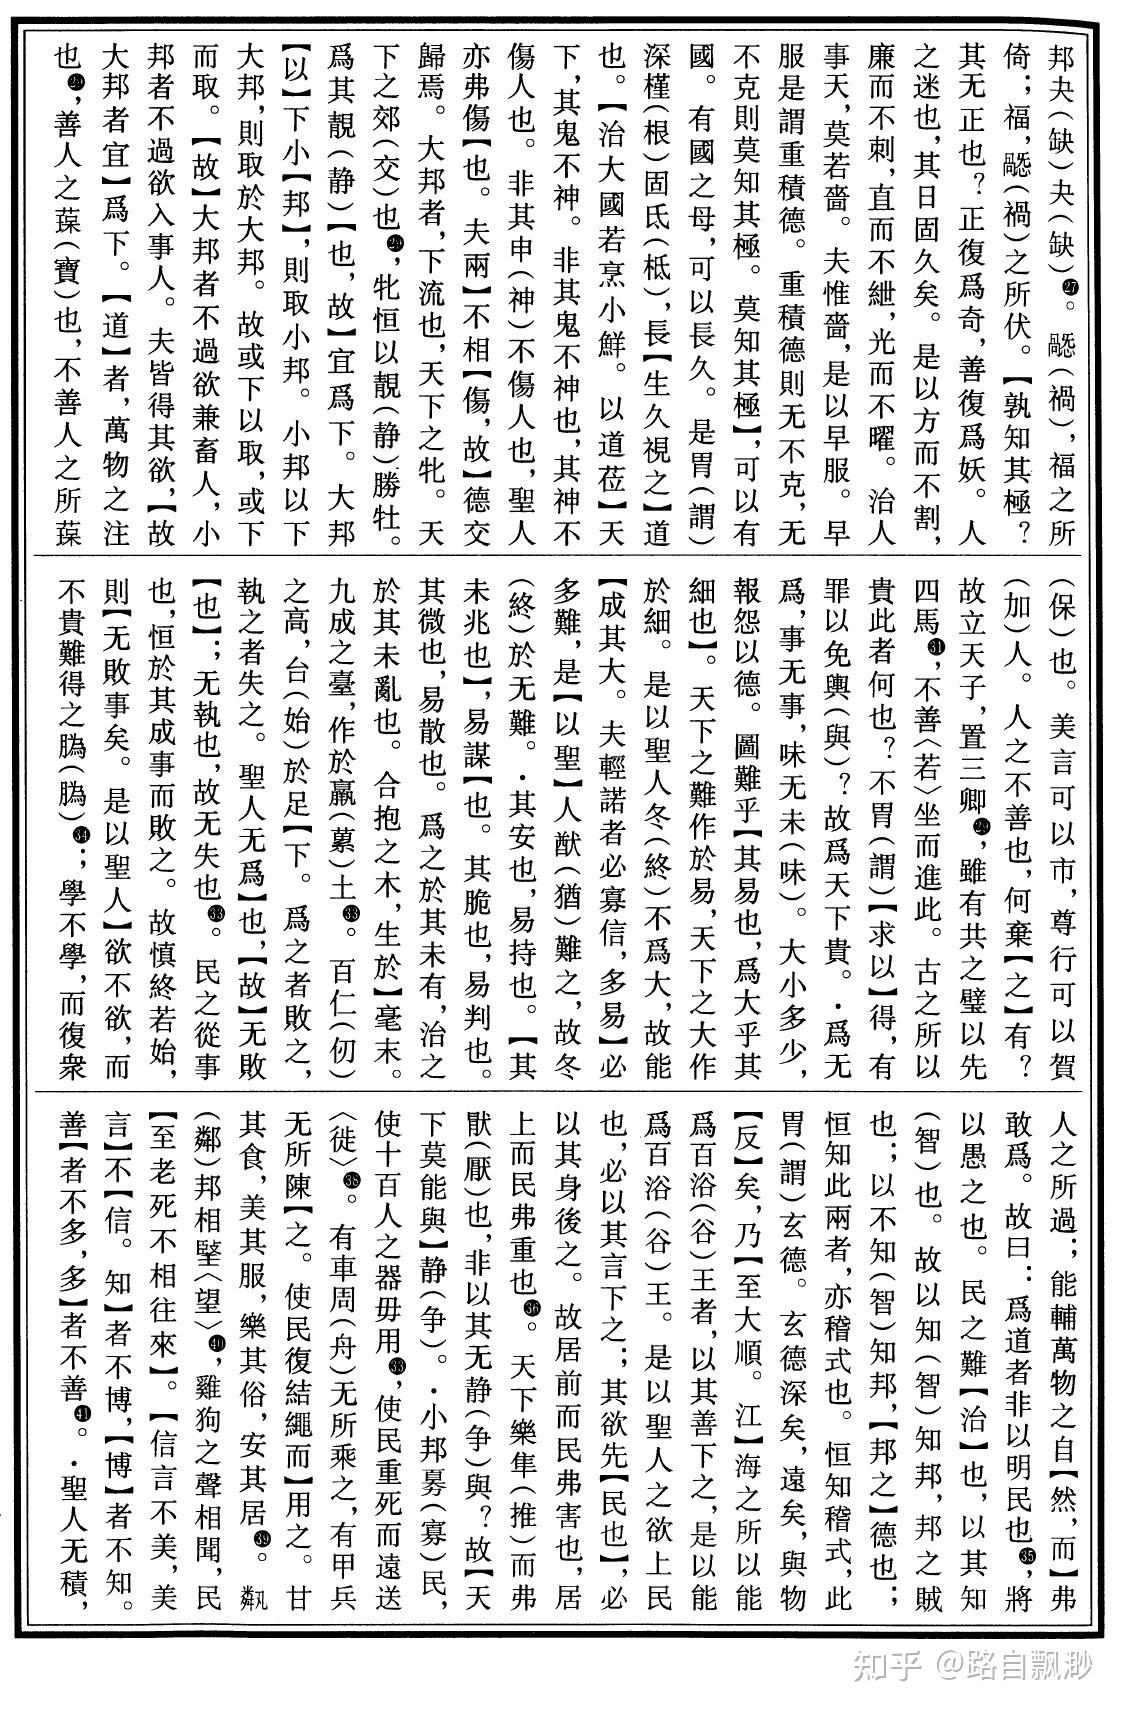 邦夬(缺)夬(缺)㉗。𥚽(禍)，福之所
倚；福，𥚽(禍)之所伏。【孰知其極？
其无正也？正復爲奇，善復爲妖。人
之迷也，其日固久矣。是以方而不割，
廉而不刺，直而不紲，光而不曜。治人
事天，莫若嗇。夫惟嗇，是以早服。早
服是謂重積德。重積德則无不克，无
不克則莫知其極。莫知其極】，可以有
國。有國之母，可以長久。是胃(謂)
深槿(根)固氐(柢)，長【生久視之】道
也。【治大國若烹小鮮。以道莅】天
下，其鬼不神。非其鬼不神也，其神不
傷人也。非其申(神)不傷人也，聖人
亦弗傷【也。夫兩】不相【傷，故】德交
歸焉。大邦者，下流也，天下之牝。天
下之郊(交)也㉘，牝恒以靚(静)勝牡。
爲其靚(静)【也，故】宜爲下。大邦
【以】下小【邦】，則取小邦。小邦以下
大邦，則取於大邦。故或下以取，或下
而取。【故】大邦者不過欲兼畜人，小
邦者不過欲入事人。夫皆得其欲，【故
大邦者宜】爲下。【道】者，萬物之注
也㉙，善人之葆(寶)也，不善人之所葆
(保)也。美言可以市，尊行可以賀
(加)人。人之不善也，何棄【之】有？
故立天子，置三卿㉙，雖有共之璧以先
四馬㉛，不善〈若〉坐而進此。古之所以
貴此者何也？不胃(謂)【求以】得，有
罪以免輿(與)？故爲天下貴。·爲无
爲，事无事，味无未(味)。大小多少，
報怨以德。圖難乎【其易也，爲大乎其
細也】。天下之難作於易，天下之大作
於細。是以聖人冬(終)不爲大，故能
【成其大。夫輕諾者必寡信，多易】必
多難，是【以聖】人猷(猶)難之，故冬
(終)於无難。·其安也，易持也。【其
未兆也】，易謀【也。其脆也，易判也。
其微也，易散也。爲之於其未有，治之
於其未亂也。合抱之木，生於】毫末。
九成之臺，作於羸(蔂)土㉝。百仁(仞)
之高，台(始)於足【下。爲之者敗之，
執之者失之。聖人无爲】也，【故】无敗
【也】；无執也，故无失也㉝。民之從事
也，恒於其成事而敗之。故慎終若始，
則【无敗事矣。是以聖人】欲不欲，而
不貴難得之𦠆(𦠆)㉞；學不學，而復衆
人之所過；能輔萬物之自【然，而】弗
敢爲。故曰：爲道者非以明民也㉟，將
以愚之也。民之難【治】也，以其知
(智)也。故以知(智)知邦，邦之賊
也；以不知(智)知邦，【邦之】德也；
恒知此兩者，亦稽式也。恒知稽式，此
胃(謂)玄德。玄德深矣，遠矣，與物
【反】矣，乃【至大順。江】海之所以能
爲百浴(谷)王者，以其善下之，是以能
爲百浴(谷)王。是以聖人之欲上民
也，必以其言下之；其欲先【民也】，必
以其身後之。故居前而民弗害也，居
上而民弗重也㊱。天下樂隼(推)而弗
猒(厭)也，非以其无静(争)與？故【天
下莫能與】静(争)。·小邦募(寡)民，
使十百人之器毋用㊳，使民重死而遠送
〈徙〉㊳。有車周(舟)无所乘之，有甲兵
无所陳【之。使民復結繩而】用之。甘
其食，美其服，樂其俗，安其居㊴。𠳵
(鄰)邦相朢〈望〉㊵，雞狗之聲相聞，民
【至老死不相往來】。【信言不美，美
言】不【信。知】者不博，【博】者不知。
善【者不多，多】者不善㊶。·聖人无積，
知乎 @路自飘渺